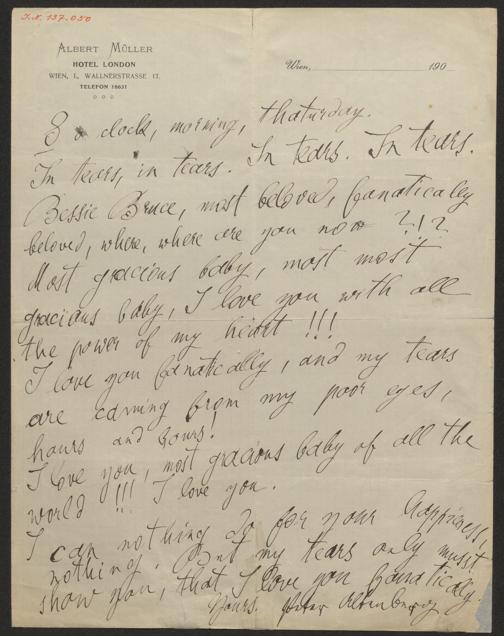 I.N. 137.050
ALBERT MÜLLER
HOTEL LONDON
WIEN, I., WALLNERSTRASSE 17.
TELEFON 18631
Wien, 190
8 o clock, morning, thaturday.
In tears, in tears. In tears. In tears.
Bessie Bruce, most beloved, fanatically
beloved, where, where are you now ?!?
Most gracious baby, most most
gracious baby, I love you with all
the power of my heart !!!
I love you fanatically, and my tears
are coming from my poor eyes,
hours and hours!
I love you, most gracious baby of all the
world !!! I love you.
I can nothing do for your happiness,
nothing. But my tears only must
show you, that I love you fanatically.
Yours. Peter Altenberg